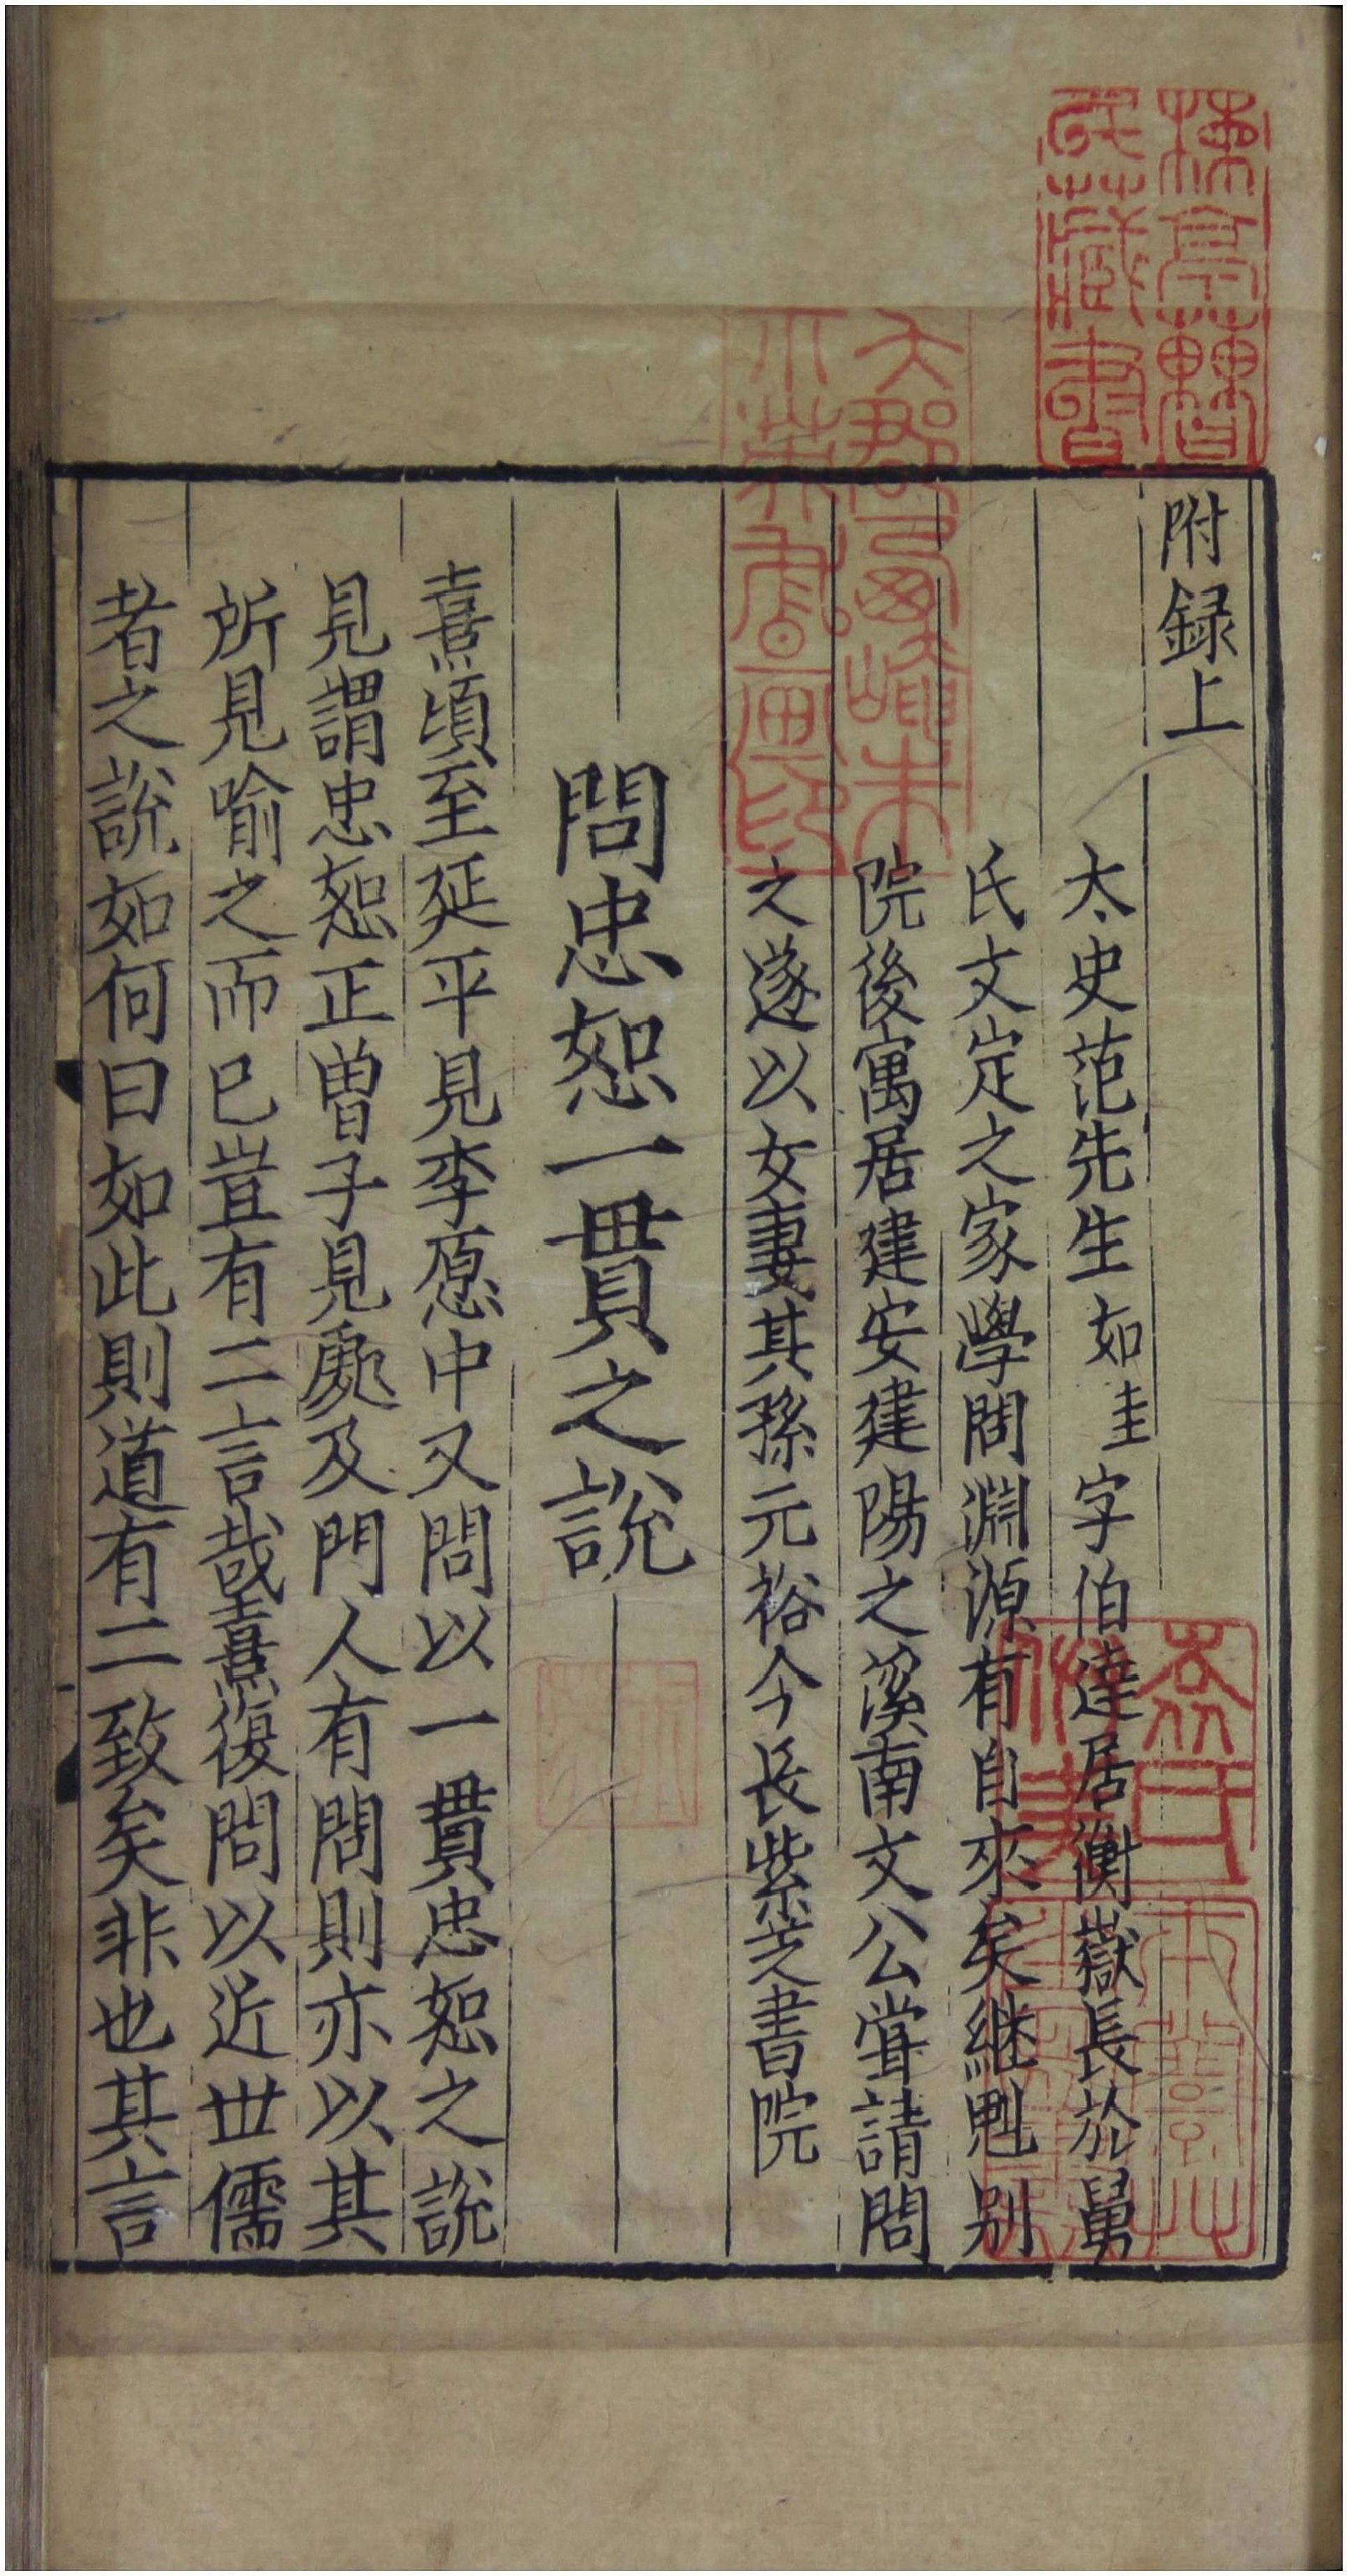 附録上
太史范先生如圭字伯達居衡嶽長於舅
氏文定之家學問淵源有自來矣継魁別
院後寓居建安建陽之溪南文公甞請問
之遂以女妻其孫元裕今長紫芝書院
問忠恕一貫之說
熹頃至延平見李愿中又問以一貫忠恕之說
見謂忠恕正曾子見處及門人有問則亦以其
所見喻之而已豈有二言哉熹復問以近世儒
者之說如何曰如此則道有二致矣非也其言